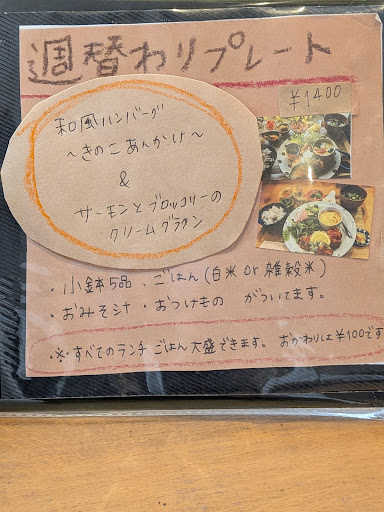 週替わりプレート
¥1400
和風ハンバーグ
～きのこあんかけ～
&
サーモンとブロッコリーの
クリームグラタン
・小鉢5品、ごはん(白米or雑穀米)
・おみそ汁・おつけもの がついてます。
・※すべてのランチごはん大盛できます。おかわりは¥100です